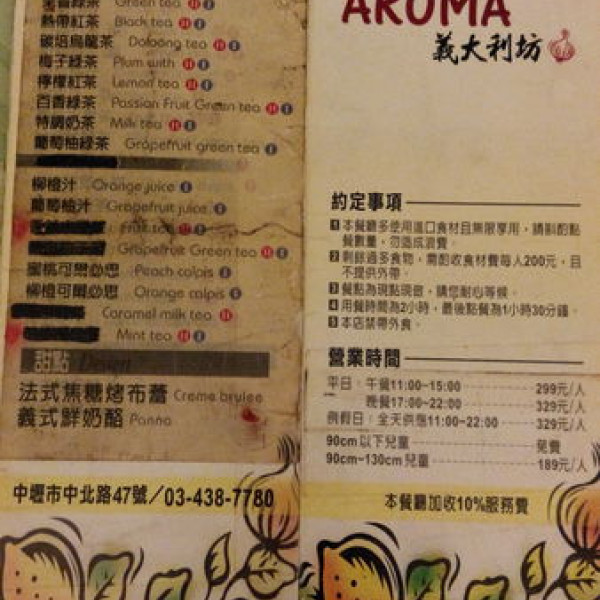 Green tea H I
熱帶紅茶 Black tea H I
碳焙烏龍茶 Dobong tea H I
梅子綠茶 Plum with H I
檸檬紅茶 Lemon tea H I
百香綠茶 Passion Fruit Green tea H I
特調奶茶 Milk tea H I
葡萄柚綠茶 Grapefruit green tea I
柳橙汁 Orange juice I
葡萄柚汁 Grapefruit juice I
Fruit tea H
Grapefruit Green tea H I
蜜桃可爾必思 Peach calpis I
柳橙可爾必思 Orange calpis I
Caramel milk tea H
Mint tea H I
甜點 Dessert
法式焦糖烤布蕾 Creme brulee
義式鮮奶酪 Panna
中壢市中北路47號／03-438-7780
AROMA
義大利坊
約定事項
1 本餐廳多使用進口食材且無限享用，請斟酌點
餐數量，勿造成浪費。
2 剩餘過多食物，需酌收食材費每人200元，且
不提供外帶。
3 餐點為現點現做，請您耐心等候。
4 用餐時間為2小時，最後點餐為1小時30分鐘。
5 本店禁帶外食。
營業時間
平日：午餐11:00~15:00 299元/人
晚餐17:00~22:00 329元/人
例假日：全天供應11:00~22:00 329元/人
90cm以下兒童 免費
90cm~130cm兒童 189元/人
本餐廳加收10%服務費